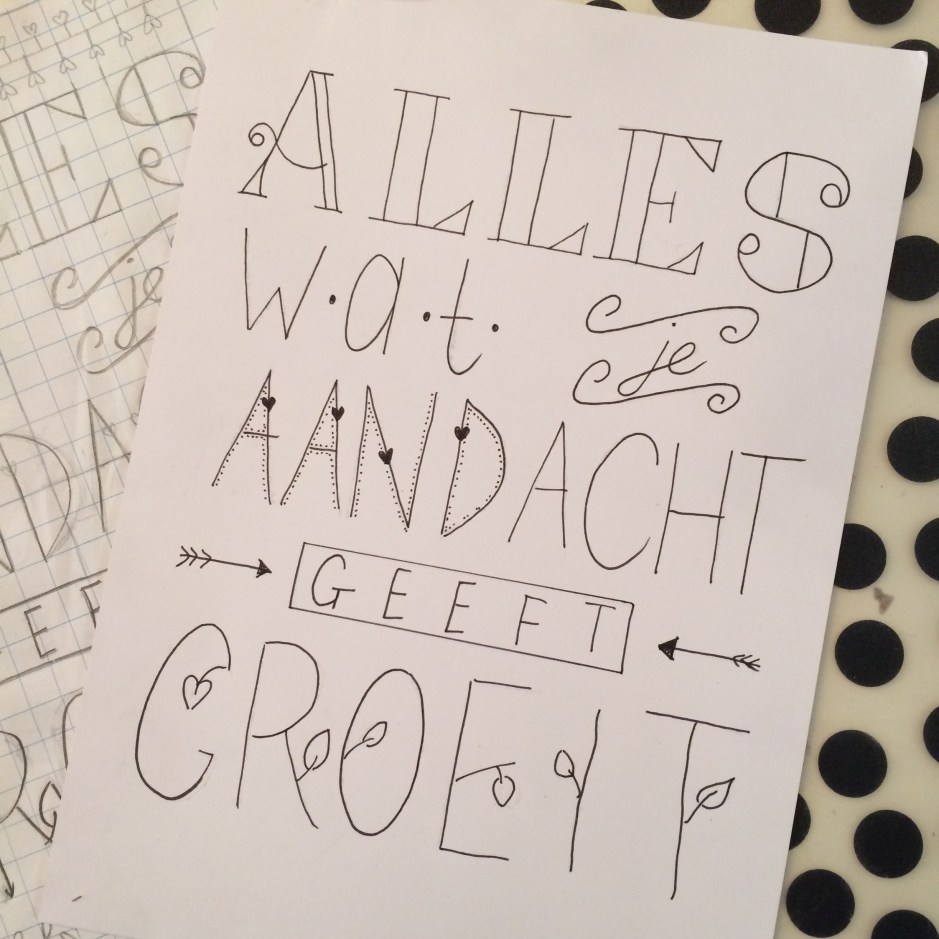 ALLES
w·a·t· je
AANDACHT
GEEFT
GROEIT